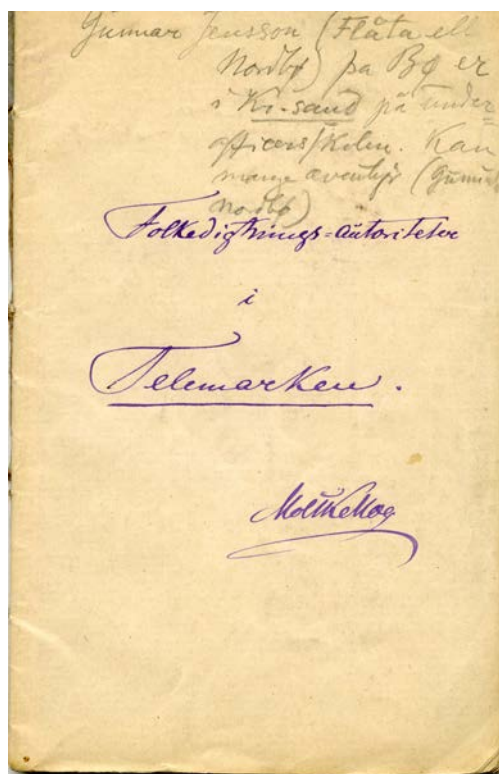 Gunnar Jensson (Flåta ell
Nordbø) på Bø er
i Kr.sand på under=
officers/kolen. Kan
mange æventyr (Gunnar
Nordbø)
Folkedigtnings=autoriteter
i
Telemarken.
MoltkeMoe